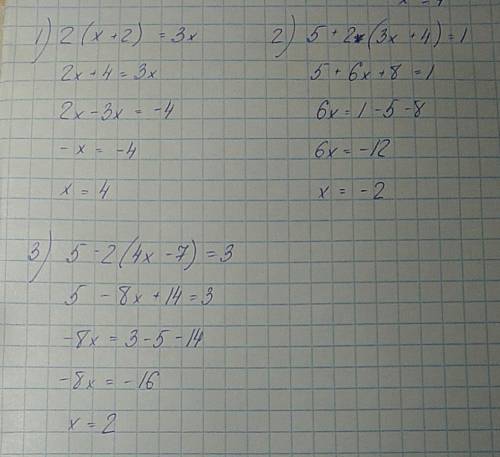 1) 2(x+2) = 3x
2x+4=3x
2x-3x = -4
-x = -4
x = 4
2) 5+2(3x+4)=1
5+6x+8=1
6x=1-5-8
6x=-12
x = -2
3) 5-2(4x-7)=3
5 -8x+14=3
-8x=3-5-14
-8x=-16
x=2